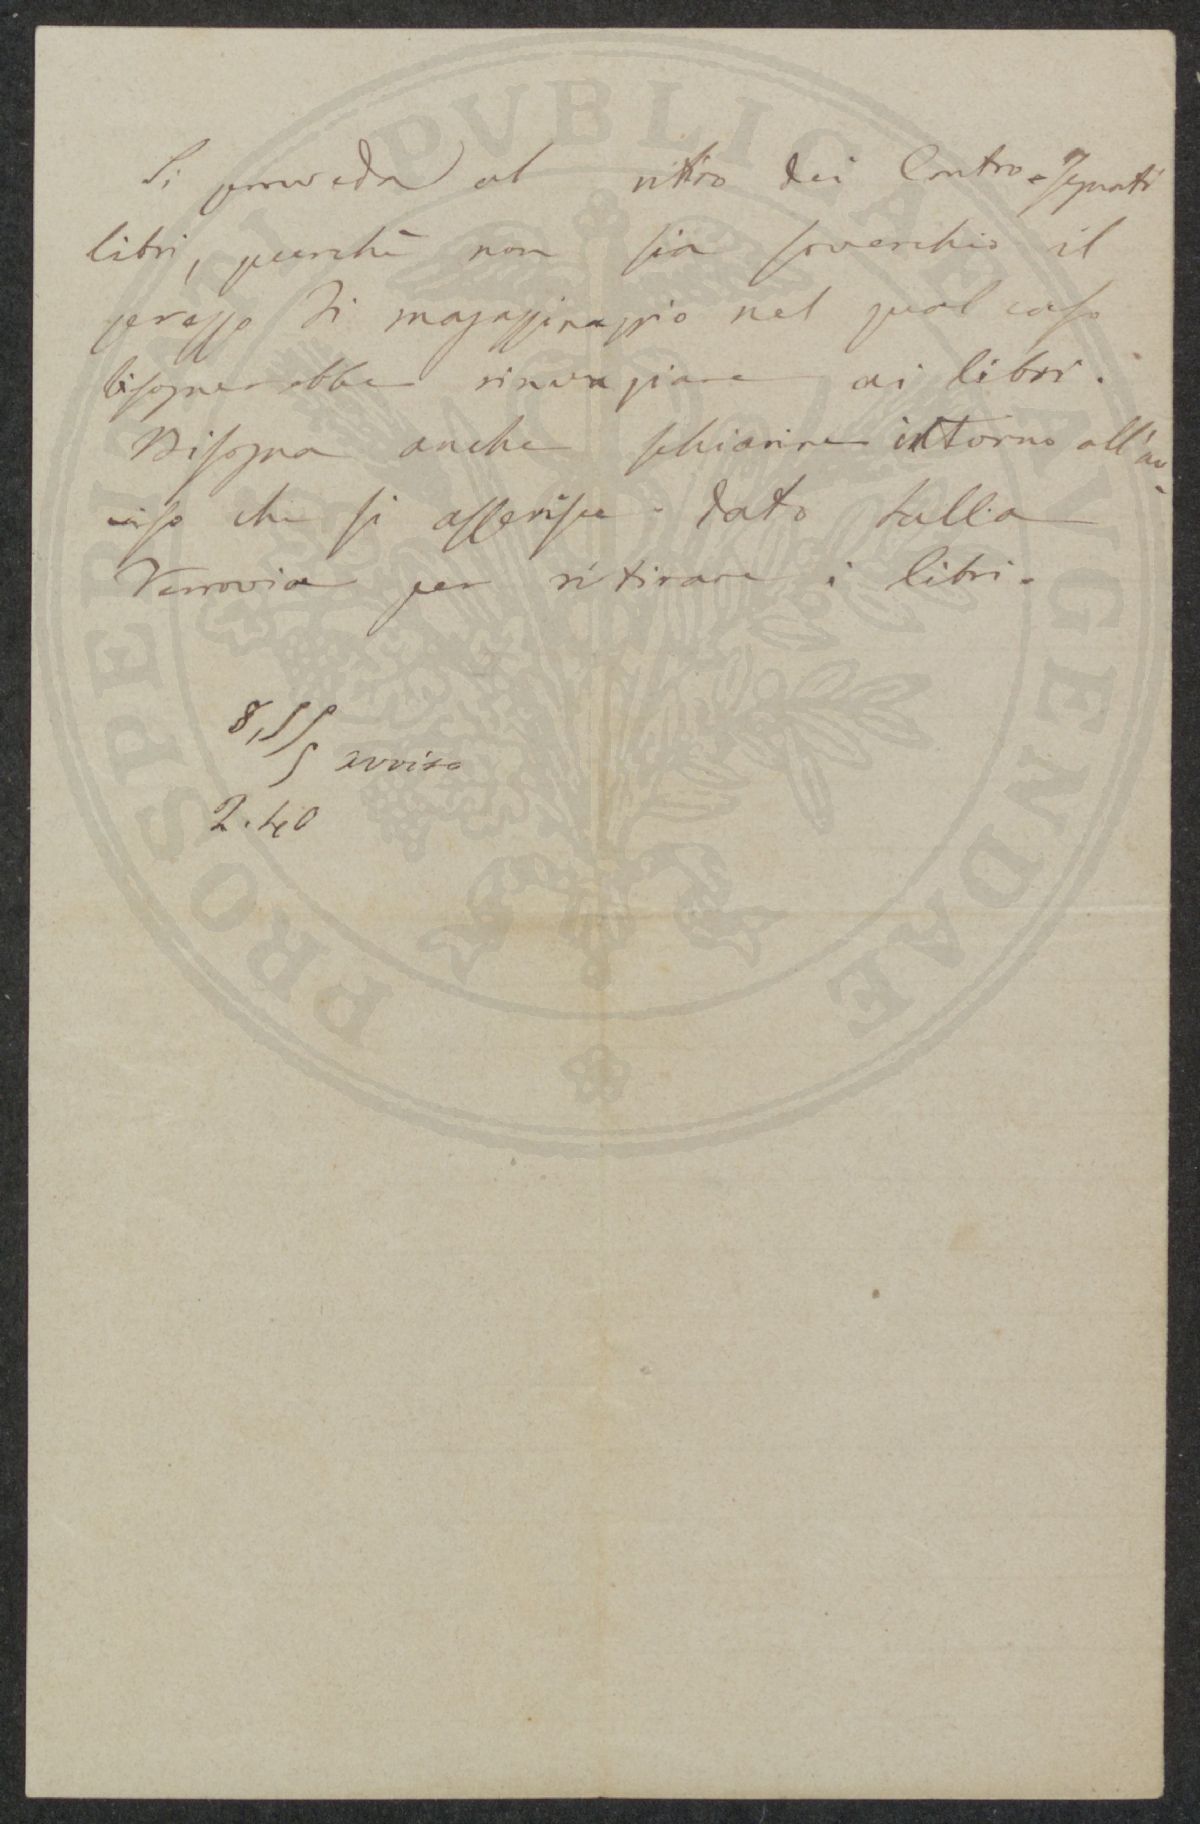 Si provveda al ritiro dei Contro-segnati
libri, purchè non sia soverchio il
prezzo di magazzinaggio nel qual caso
bisognerebbe rinunziare ai libri.
Bisogna anche schiarire intorno all'av
viso che si asserisce dato dalla
Ferrovia per ritirare i libri.
8,55
5 avviso
2.40
PROSPERITATI PVBLICAE AVGENDAE